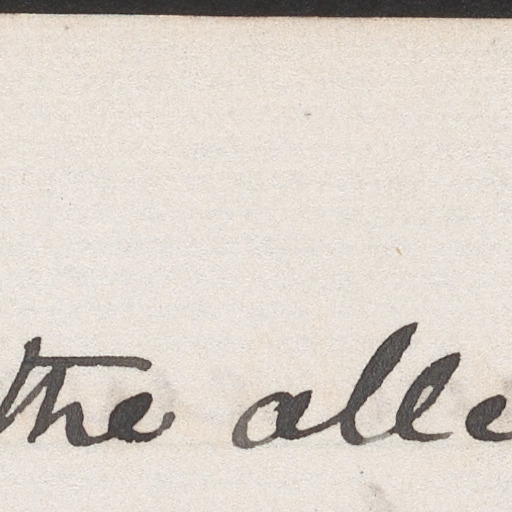 the alle